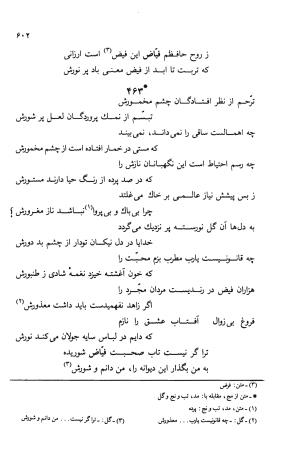 ۶۰۲
ز روح حافظم فیّاض این فیض(۳) است ارزانی
که تربت تا ابد از فیض معنی باد پر نورش
۴۶۳*
ترحّم از نظر افتادگان چشم مخمورش
تبسّم از نمك پروردگان لعل پر شورش
چه اهمالست ساقی را نمی‌داند، نمی‌بیند
که مستی در خمار افتاده است از چشم مخمورش
چه رسم احتیاط است این نگهبانان نازش را
که در صد پرده از رنگ حیا دارند مستورش
ز بس پیشش نیاز عالمی بر خاك می‌غلتد
چرا بی‌باك و بی‌پروا(۱) نباشد ناز مغرورش!
به دلها آن گل نورسته پر نزدیك می‌گردد
خدایا در دل نیکان تودار از چشم بد دورش
چه قانونیست یارب مطرب بزم محبّت را
که خون آغشته خیزد نغمهٔ شادی ز طنبورش
هزاران فیض در رندیست مردان مجرّد را
اگر زاهد نفهمیدست باید داشت معذورش(۲)
فروغ بی‌زوال آفتاب عشق را نازم
که دایم در لباس سایه جولان می‌کند نورش
ترا گر نیست تاب صحبت فیّاض شوریده
به من بگذار این دیوانه را، من دانم و شورش(۳)
(۳) ـ متن: فرض
* ـ متن از مج، مقابله با: مد، تب و نج و گل
(۱) ـ متن، مد، تب و نج: پرده
(۲) ـ گل: ـ چه قانونیست یارب... معذورش
(۳) ـ گل: ـ ترا گر نیست... من دانم و شورش